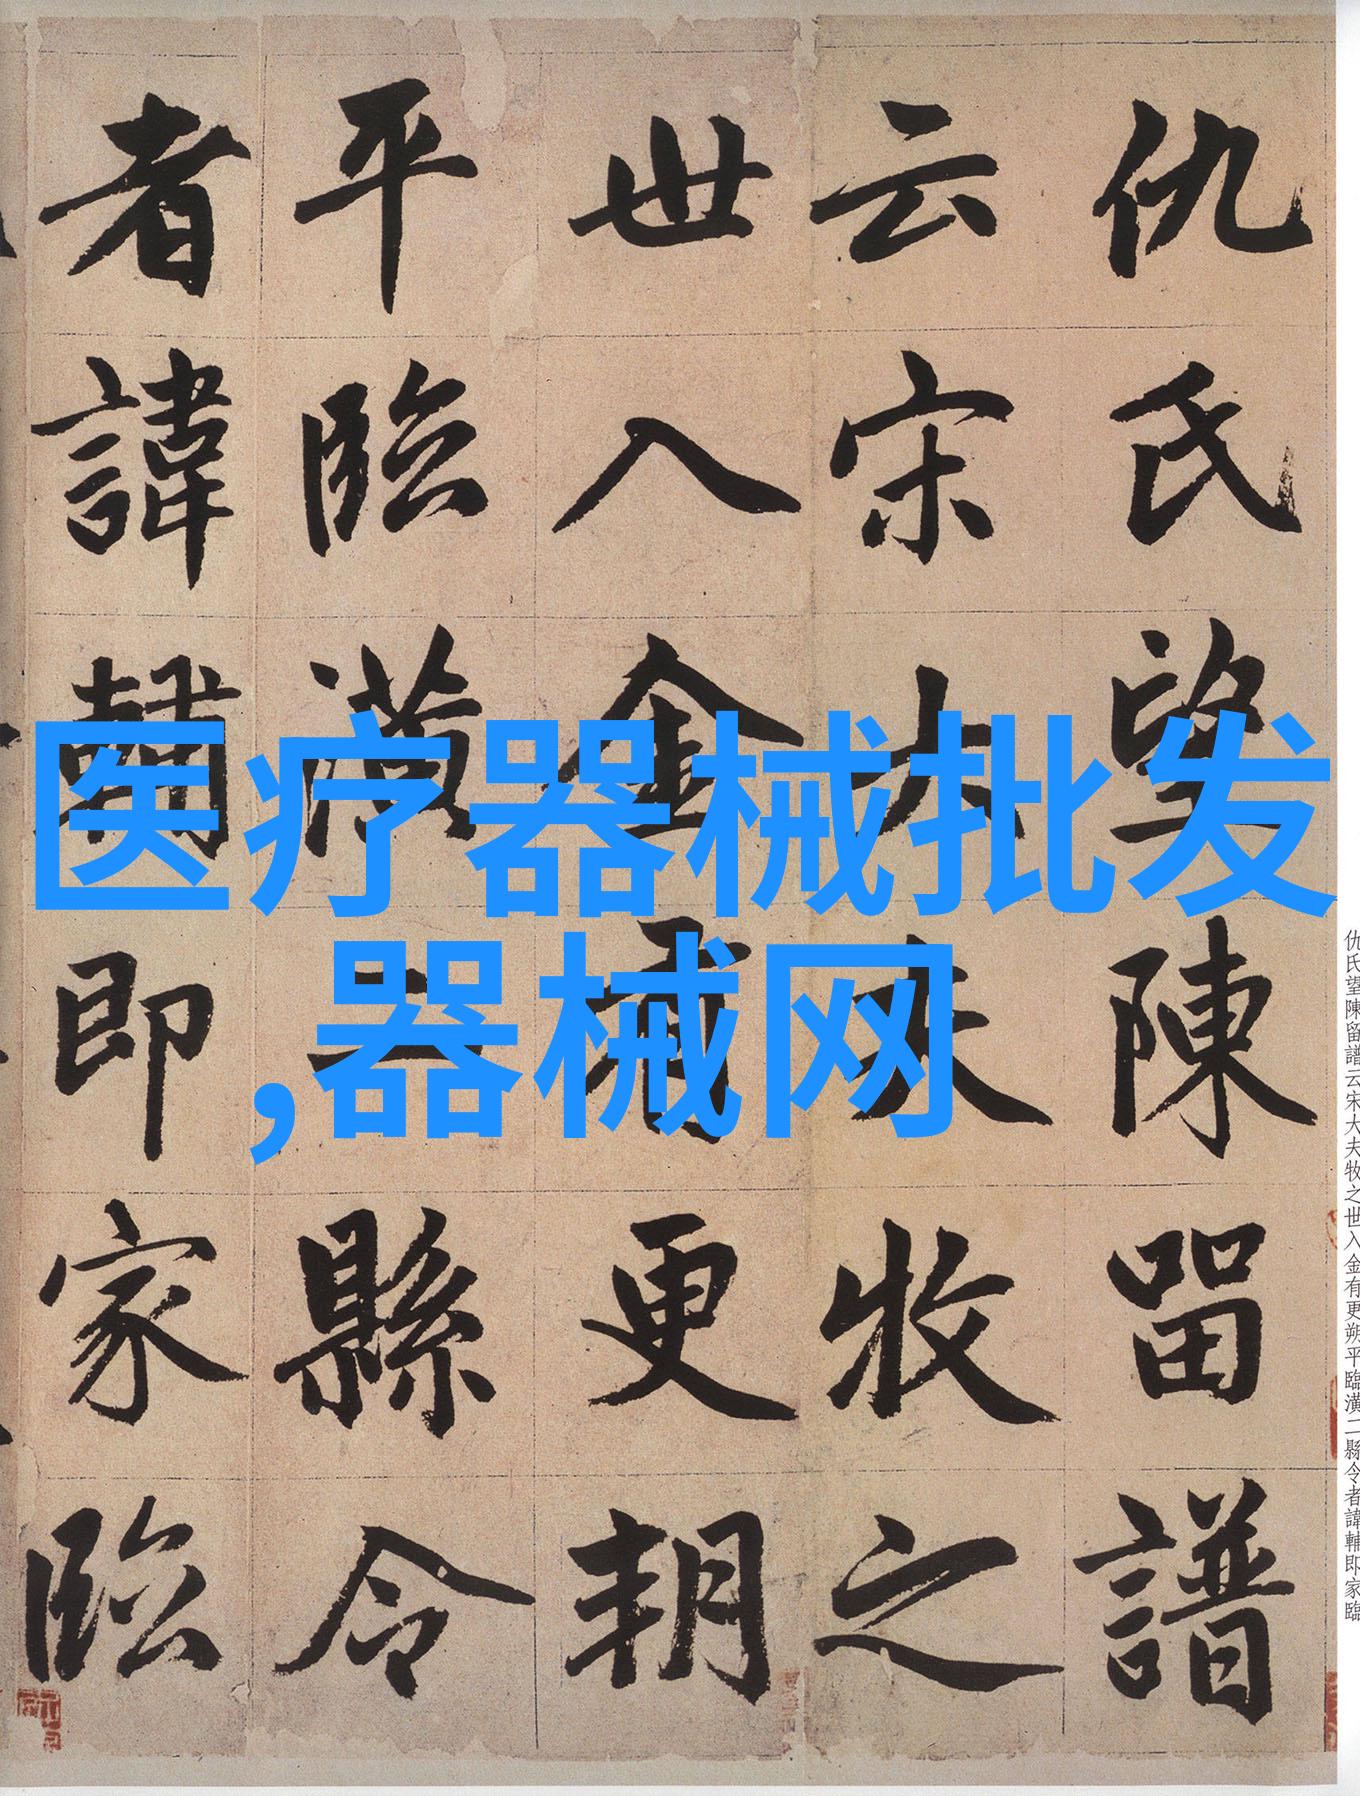 仇氏望陳留譜
云宋大夫牧之
世入金有更朔
平臨潢二縣令
者諱輔即家臨
医疗器械批发
,器械网
仇氏望陳留譜云宋大夫牧之世入金有更朔平臨潢二縣令者諱輔即家臨